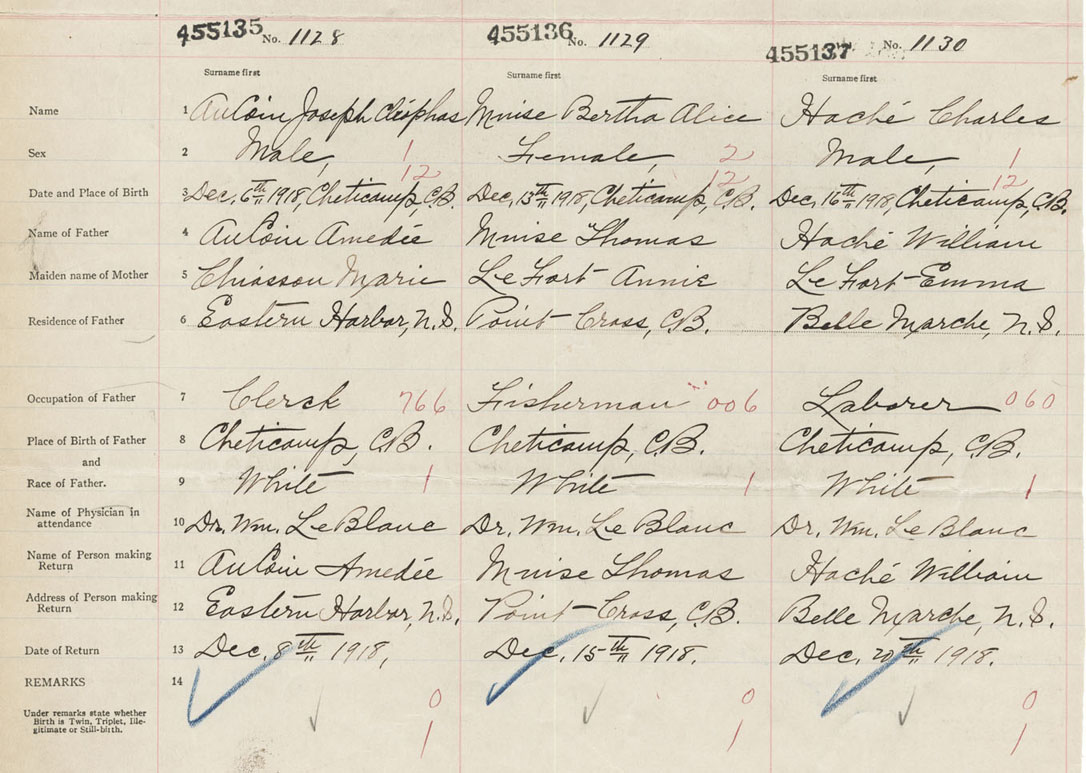 455135 No. 1128 455136 No. 1129 455137 No. 1130
Surname first Surname first Surname first
Name 1 AuCoin Joseph Cléophas Muise Bertha Alice Haché Charles
Sex 2 Male, 1 Female, 2 Male, 1
12 12 12
Date and Place of Birth 3 Dec. 6th 1918, Cheticamp, C.B. Dec. 13th 1918, Cheticamp, C.B. Dec. 16th 1918, Cheticamp, C.B.
Name of Father 4 AuCoin Amedée Muise Thomas Haché William
Maiden name of Mother 5 Chiasson Marie Le Fort Annie Le Fort Emma
Residence of Father 6 Eastern Harbor, N.S. Point Cross, C.B. Belle Marche, N.S.
Occupation of Father 7 Clerck 766 Fisherman 006 Laborer 060
Place of Birth of Father 8 Cheticamp, C.B. Cheticamp, C.B. Cheticamp, C.B.
and
Race of Father. 9 White 1 White 1 White 1
Name of Physician in
attendance 10 Dr. Wm. LeBlanc Dr. Wm. Le Blanc Dr. Wm. Le Blanc
Name of Person making
Return 11 AuCoin Amedée Muise Thomas Haché William
Address of Person making
Return 12 Eastern Harbor, N.S. Point Cross, C.B. Belle Marche, N.S.
Date of Return 13 Dec. 8th 1918, Dec. 15th 1918. Dec. 20th 1918.
REMARKS 14
0 0 0
Under remarks state whether
Birth is Twin, Triplet, Ille-
gitimate or Still-birth.
1 1 1